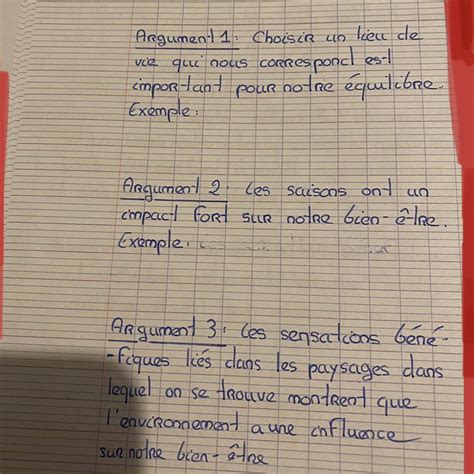 Argument 1: Choisir un lieu de
vie qui nous correspond est
important pour notre équilibre.
Exemple:
Argument 2: Les saisons ont un
impact fort sur notre bien-être.
Exemple:
Argument 3: Les sensations béné-
-fiques liés dans les paysages dans
lequel on se trouve montrent que
l'environnement a une influence
sur notre bien-être